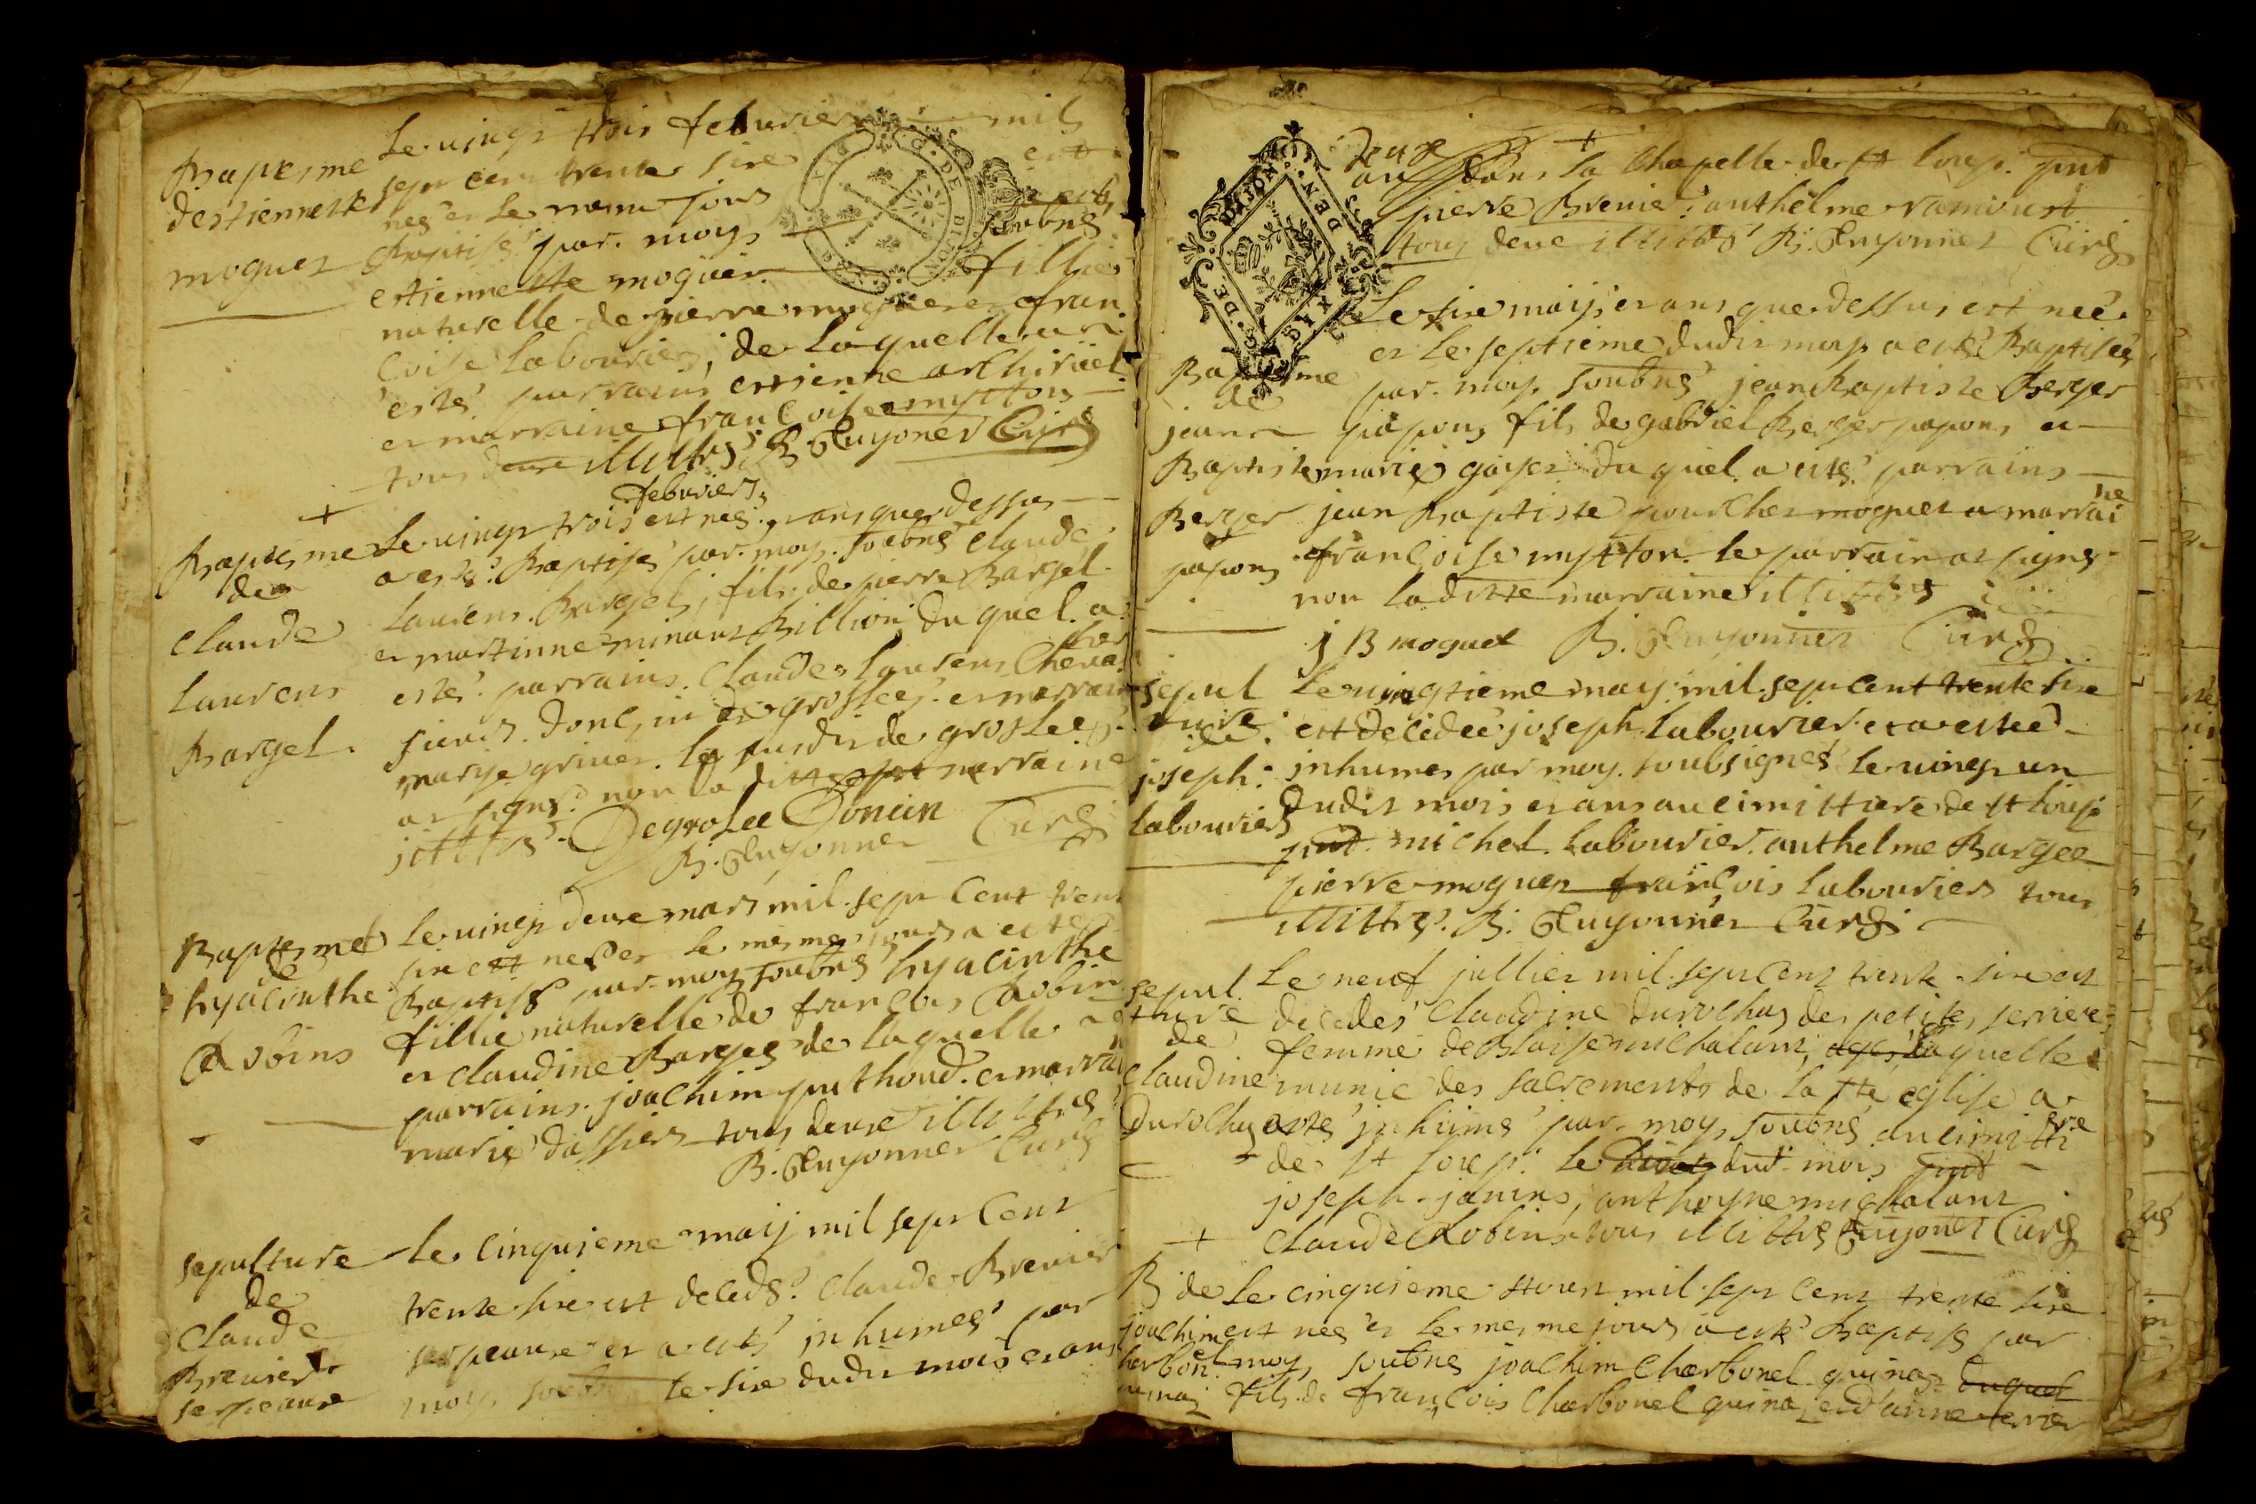 Baptesme
destiennette
moguet
Le vingt trois febvrier mil
sept cent trente sixe est
neé et le meme jour a esté
Baptiseé par moy soubné
estiennette moguet fillie
naturelle de pierre moguet et fran
Coise Labourier, de laquelle a
esté parrain estienne
et marraine francoise mytton
tous deux illitrés B. Guyonnet Curé
+
Baptesme
de
Claude
Laurens
Bargel
febvrier
Le vingt trois est né ans que dessus
a esté Baptisé par moy soubné Claude
Laurens Bargel, fils de pierre Bargel
et martinne minant Billion du quel a
esté parrain Claude Laurens Cheva
lier
sieur Doncin de groslee et marraine
marye griner. le susdit de groslee
at signé non la ditte marraine
Degrolee Doncin
B. Guyonnet Curé
Baptesme
de
hyacinthe
Robins
Le vingt deux mars mil sept Cent trent
sixe est neé et le mesme jours a esté
Baptisé par moy soubné hyacinthe
fillie naturelle de francois Robin
et claudine Bargeé de laquelle a
parrains joachim puthoud et marrai
marie dassiers tous deux illitrés
B. Guyonnet Curé
sepulture
de
Claude
Brevier
serpeaux
Le Cinquieme maij mil sept Cent
trente sixe est decedé Claude Brevier
serpeaux et a esté inhumé par
moy le sixe dudit mois et ans
deux
+
dans la Chapelle de st loup. pnt
pierre Brevier anthelme ramviert
tous deux illitrés B. Guyonnet Curé
Baptesme
de
jean
Baptiste
Berger
papons
Le sixe maij et ans que dessus est neé
et le septieme dudit may a esté Baptisé
par moy soubné jean Baptiste Berger
papons fils de gabriel Berger papons et
marie gayet du quel a esté parrains
jean Baptiste pourchet moguet et marrai
ne
françoise mytton le parrain at signé
non la ditte marraine illitré
j B moguet B. Guyonnet Curé
sepul
ture
de
joseph
labourier
Le vingtieme may mil sept cent trente sixe
est decedeé joseph labourier et a esteé
inhumé par moy soubsigné le vingt un
dudit mois et ans au cimittiere de st loup
pnt michel labourier anthelme Bargee
pierre moguet françois labourier tous
illittré B. Guyonnet Curé
sepul
ture
de
Claudine
durochas
Le neuf jullier mil sept cent trente sixe est
decedeé Claudine durochas de petites serriere
femme de Blaise michalant, laquelle
munie des sacrements de la ste eglise a
esté inhumé par moy soubné au cimitti
ere
de st loup le dud mois pnt
joseph janins, anthoyne michalant
+ Claude Robins tous illittrés Guyonet Curé
B de
joachim
Cherbonel
quinaz
Le cinquieme aoust mil sept Cent trente sixe
est neé et le mesme jours a esté Baptisé par
moy soubné joachim Charbonel quinaz duquel
fils de françois Charbonel quinaz et d'anne